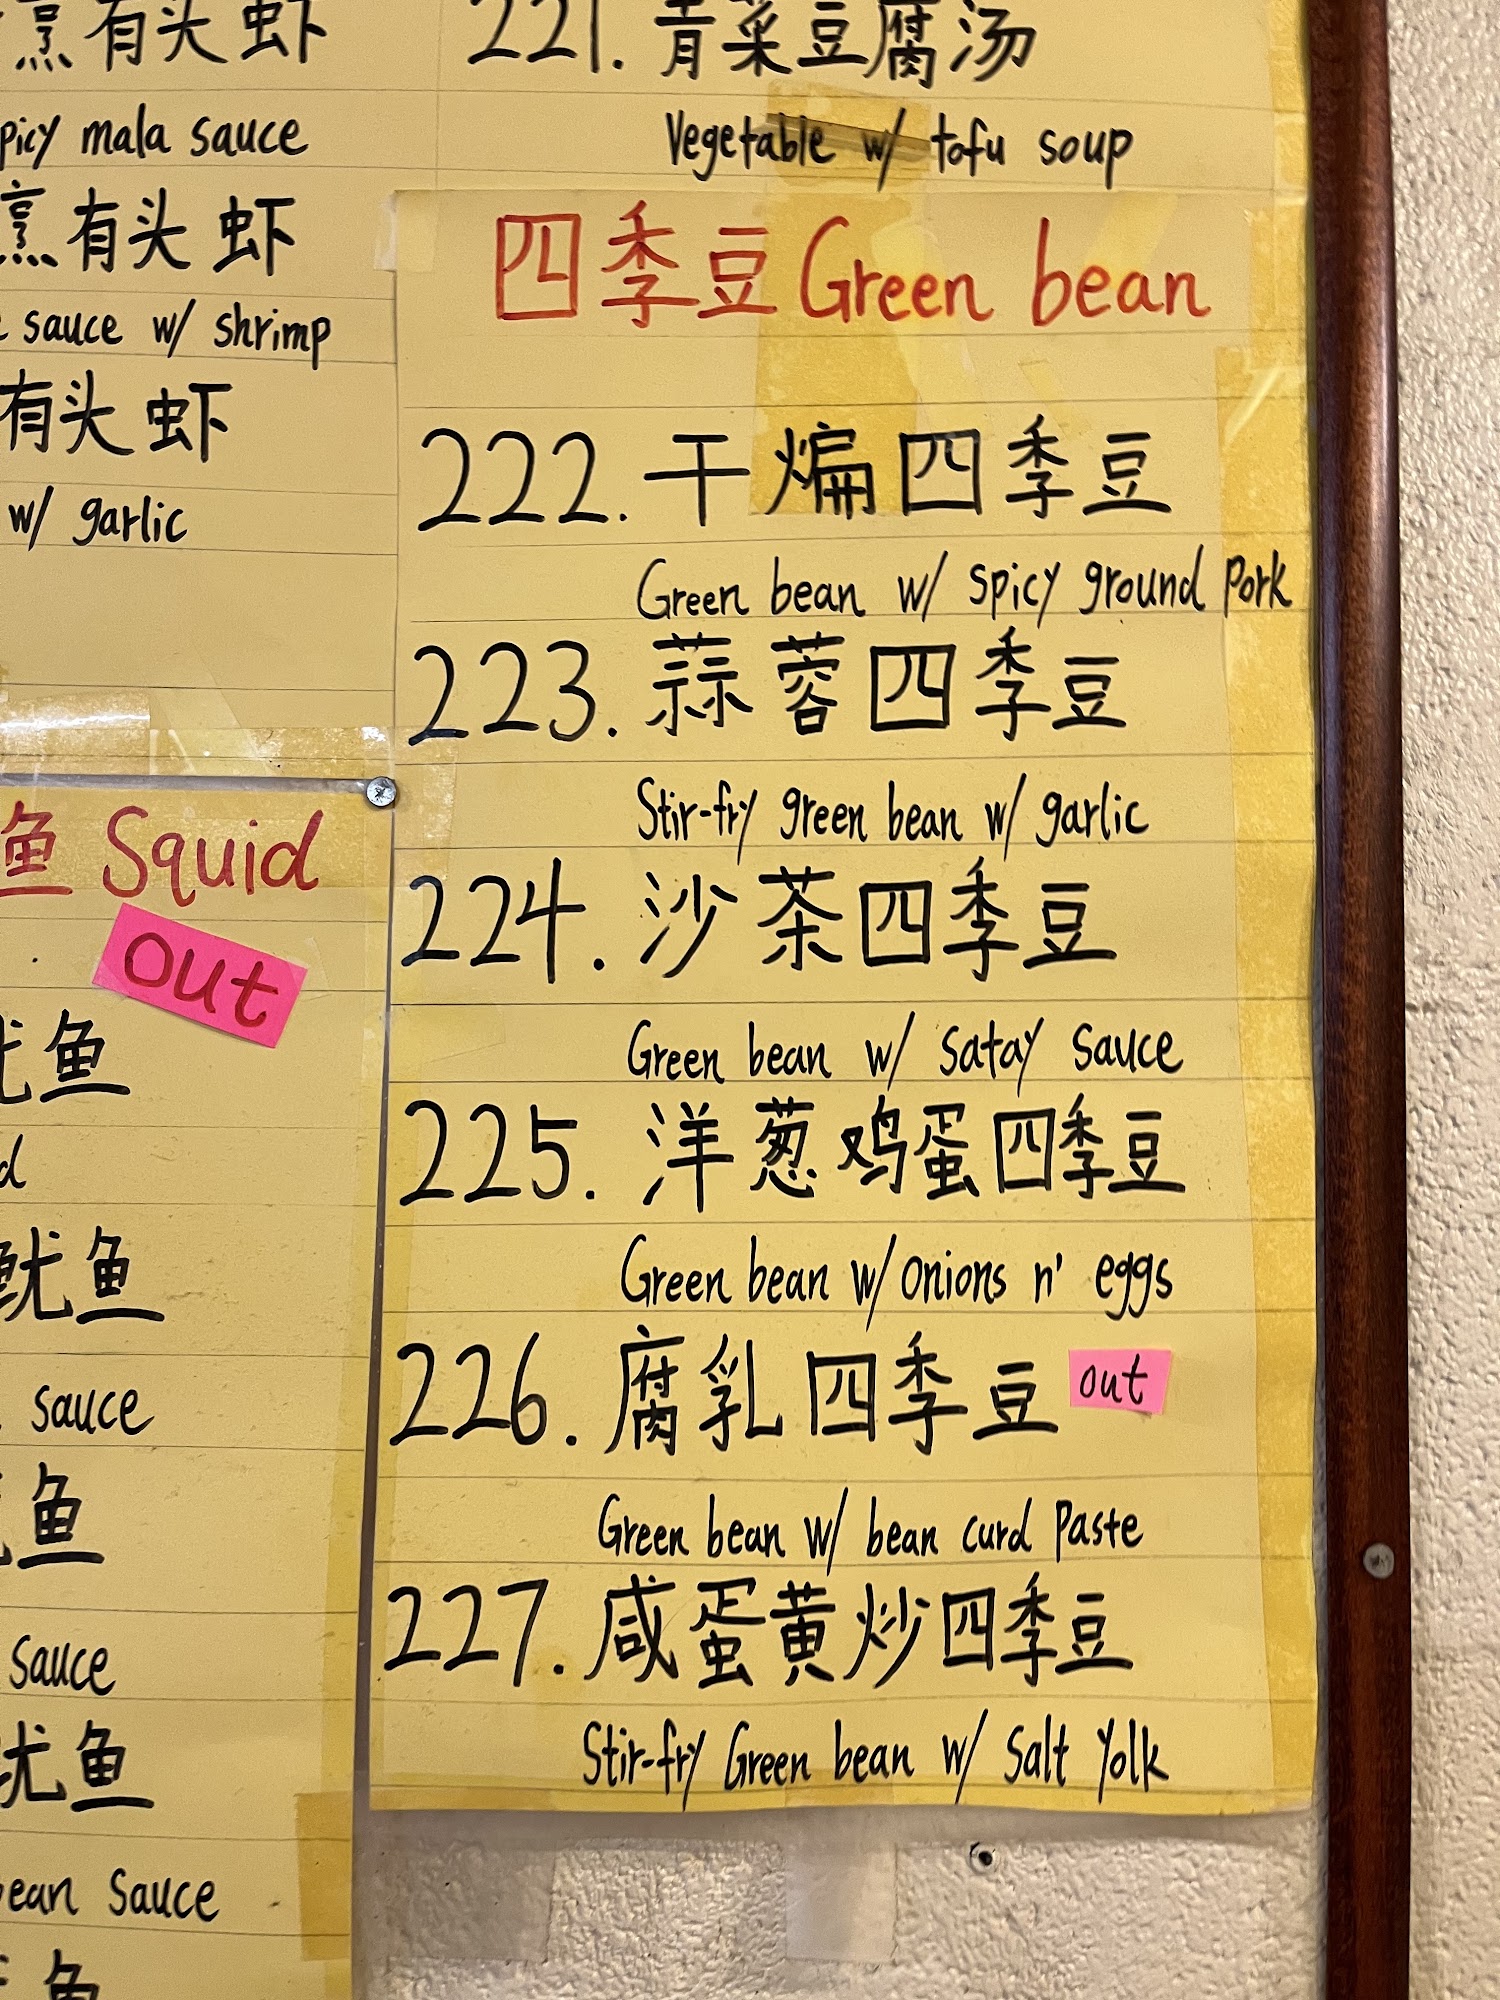 烹有头虾
picy mala sauce
烹有头虾
sauce w/ shrimp
有头虾
w/ garlic
鱼 Squid
out
鱼
鱿鱼
sauce
鱼
sauce
鱼
ean sauce
鱼
221. 青菜豆腐汤
Vegetable w/ tofu soup
四季豆 Green bean
222. 干煸四季豆
Green bean w/ spicy ground pork
223. 蒜蓉四季豆
Stir-fry green bean w/ garlic
224. 沙茶四季豆
Green bean w/ satay sauce
225. 洋葱鸡蛋四季豆
Green bean w/ onions n' eggs
226. 腐乳四季豆 out
Green bean w/ bean curd paste
227. 咸蛋黄炒四季豆
Stir-fry Green bean w/ salt yolk